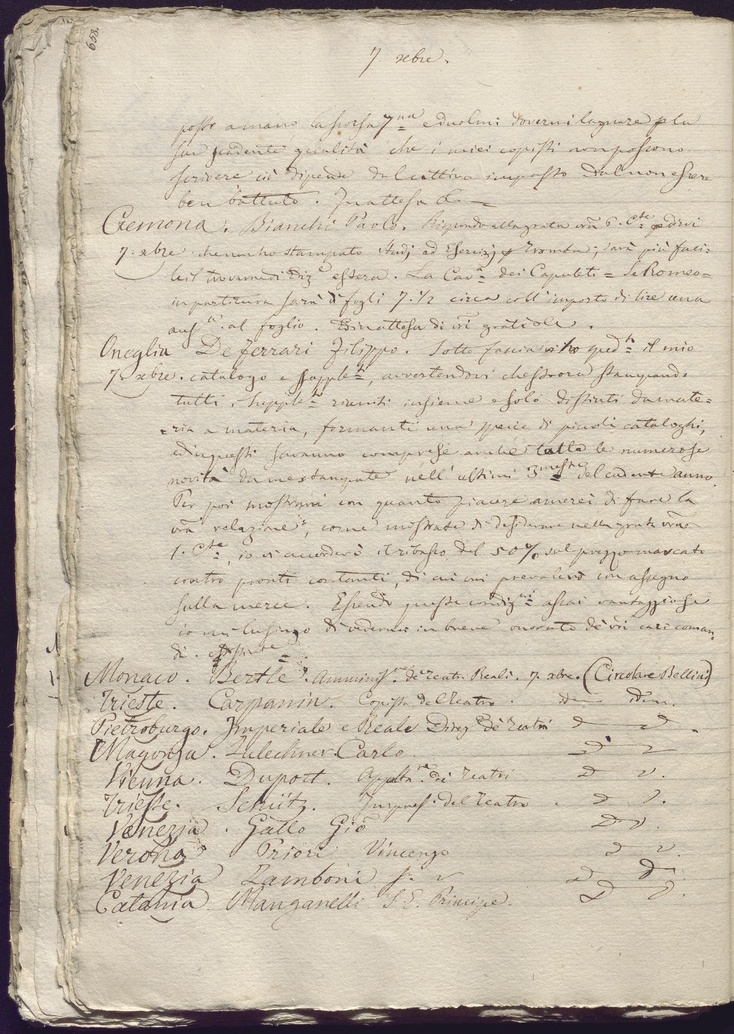 658.
7. xbre.
posso a mano la scorsa 7.na e duolmi dovermi lagnare p la
sua qualità che i miei copisti non possono
scrivere ciò dipende dal cattivo imposto dal non essere
ben battuto. In attesa &
Cremona. Bianchi Paolo. Rispondo alla grata vra 6. C.te p dirvi
7. xbre che non ho stampato Studj ed Esercizj p Tromba; sarà più faci-
le il trovarne di diz.e estera. La Cav.a dei Capuleti = Se Romeo =
in partitura sarà di fogli 7. 1/2 circa coll' importo di lire una
aus.ca al foglio. In attesa di vri
Oneglia De Ferrari Filippo. Sotto fascia vi ho sped.to il mio
7. xbre. catalogo e supple.ti, avvertendovi che stanno stampando
tutti i supple.ti riuniti insieme e solo distinti da mate-
=ria a materia, formanti una specie di piccoli cataloghi,
ed in questi saranno comprese anche tutte le numerose
novità da me stampate nell' ultimi 3 mestre del cadente anno.
Per poi mostrarvi con quanto piacere amerei di fare la
vra relazione, come mostrate di desiderare nella grata vra
1. C.te, io vi accorderò il ribasso del 50% sul prezzo marcato
contro pronti contanti, di cui mi prevalerò con assegno
sulla merce. Essendo queste condiz.ni assai vantaggiose
io mi lusingo di vedermi in breve onorato de' vri cari coman-
di.
Monaco. Bertle. Amminis.re de' Teatri Reali. 7. xbre. (Circolare Bellini)
Trieste. Carpanin. Copista del Teatro. idem idem.
Pietroburgo. Imperiale e Reale Direz. de' Teatri d d.
Magonza. Zulechner Carlo d
Vienna. Duport. Appalt.re dei Teatri d
Trieste. Schütz. Impres. del Teatro. d
Venezia. Gallo Gio. d
Verona Priori Vincenzo d
Venezia Zamboni d d
Catania. Manganelli S. E. Principe. d d.